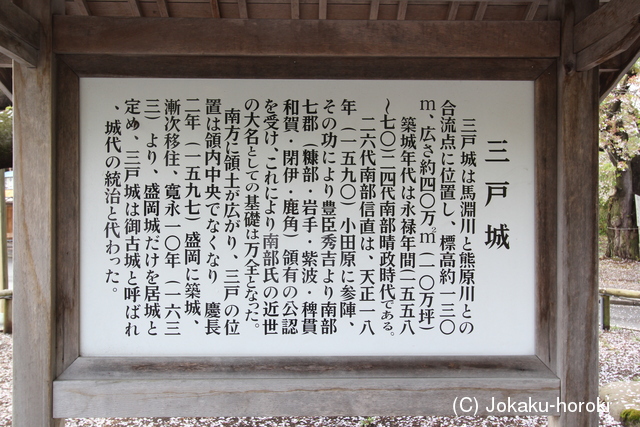 三戸城
三戸城は馬淵川と熊原川との
合流点に位置し、標高約一三〇
m、広さ約四〇万㎡（一〇万坪）
築城年代は永禄年間（一五五八
～七〇）二四代南部晴政時代である。
二六代南部信直は、天正一八
年（一五九〇）小田原に参陣、
その功により豊臣秀吉より南部
七郡（糠部・岩手・紫波・稗貫
和賀・閉伊・鹿角）領有の公認
を受け、これにより南部氏の近世
の大名としての基礎は万全となった。
南方に領土が広がり、三戸の位
置は領内中央でなくなり　慶長
二年（一五九七）盛岡に築城、
漸次移住、寛永一〇年（一六三
三）より、盛岡城だけを居城と
定め、三戸城は御古城と呼ばれ
、城代の統治と代わった。
(C) Jokaku-horoki